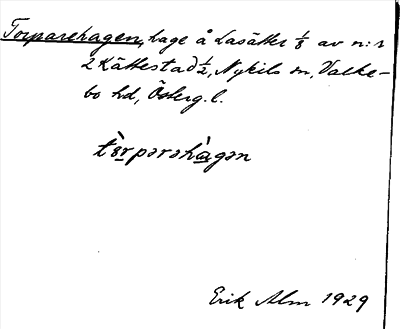 Torparehagen, hage å Lasätter 1/8 av n:r
2 Kättestad 1/2, Nykils sn, Valke-
bo hd, Österg. l.
Erik Alm 1929